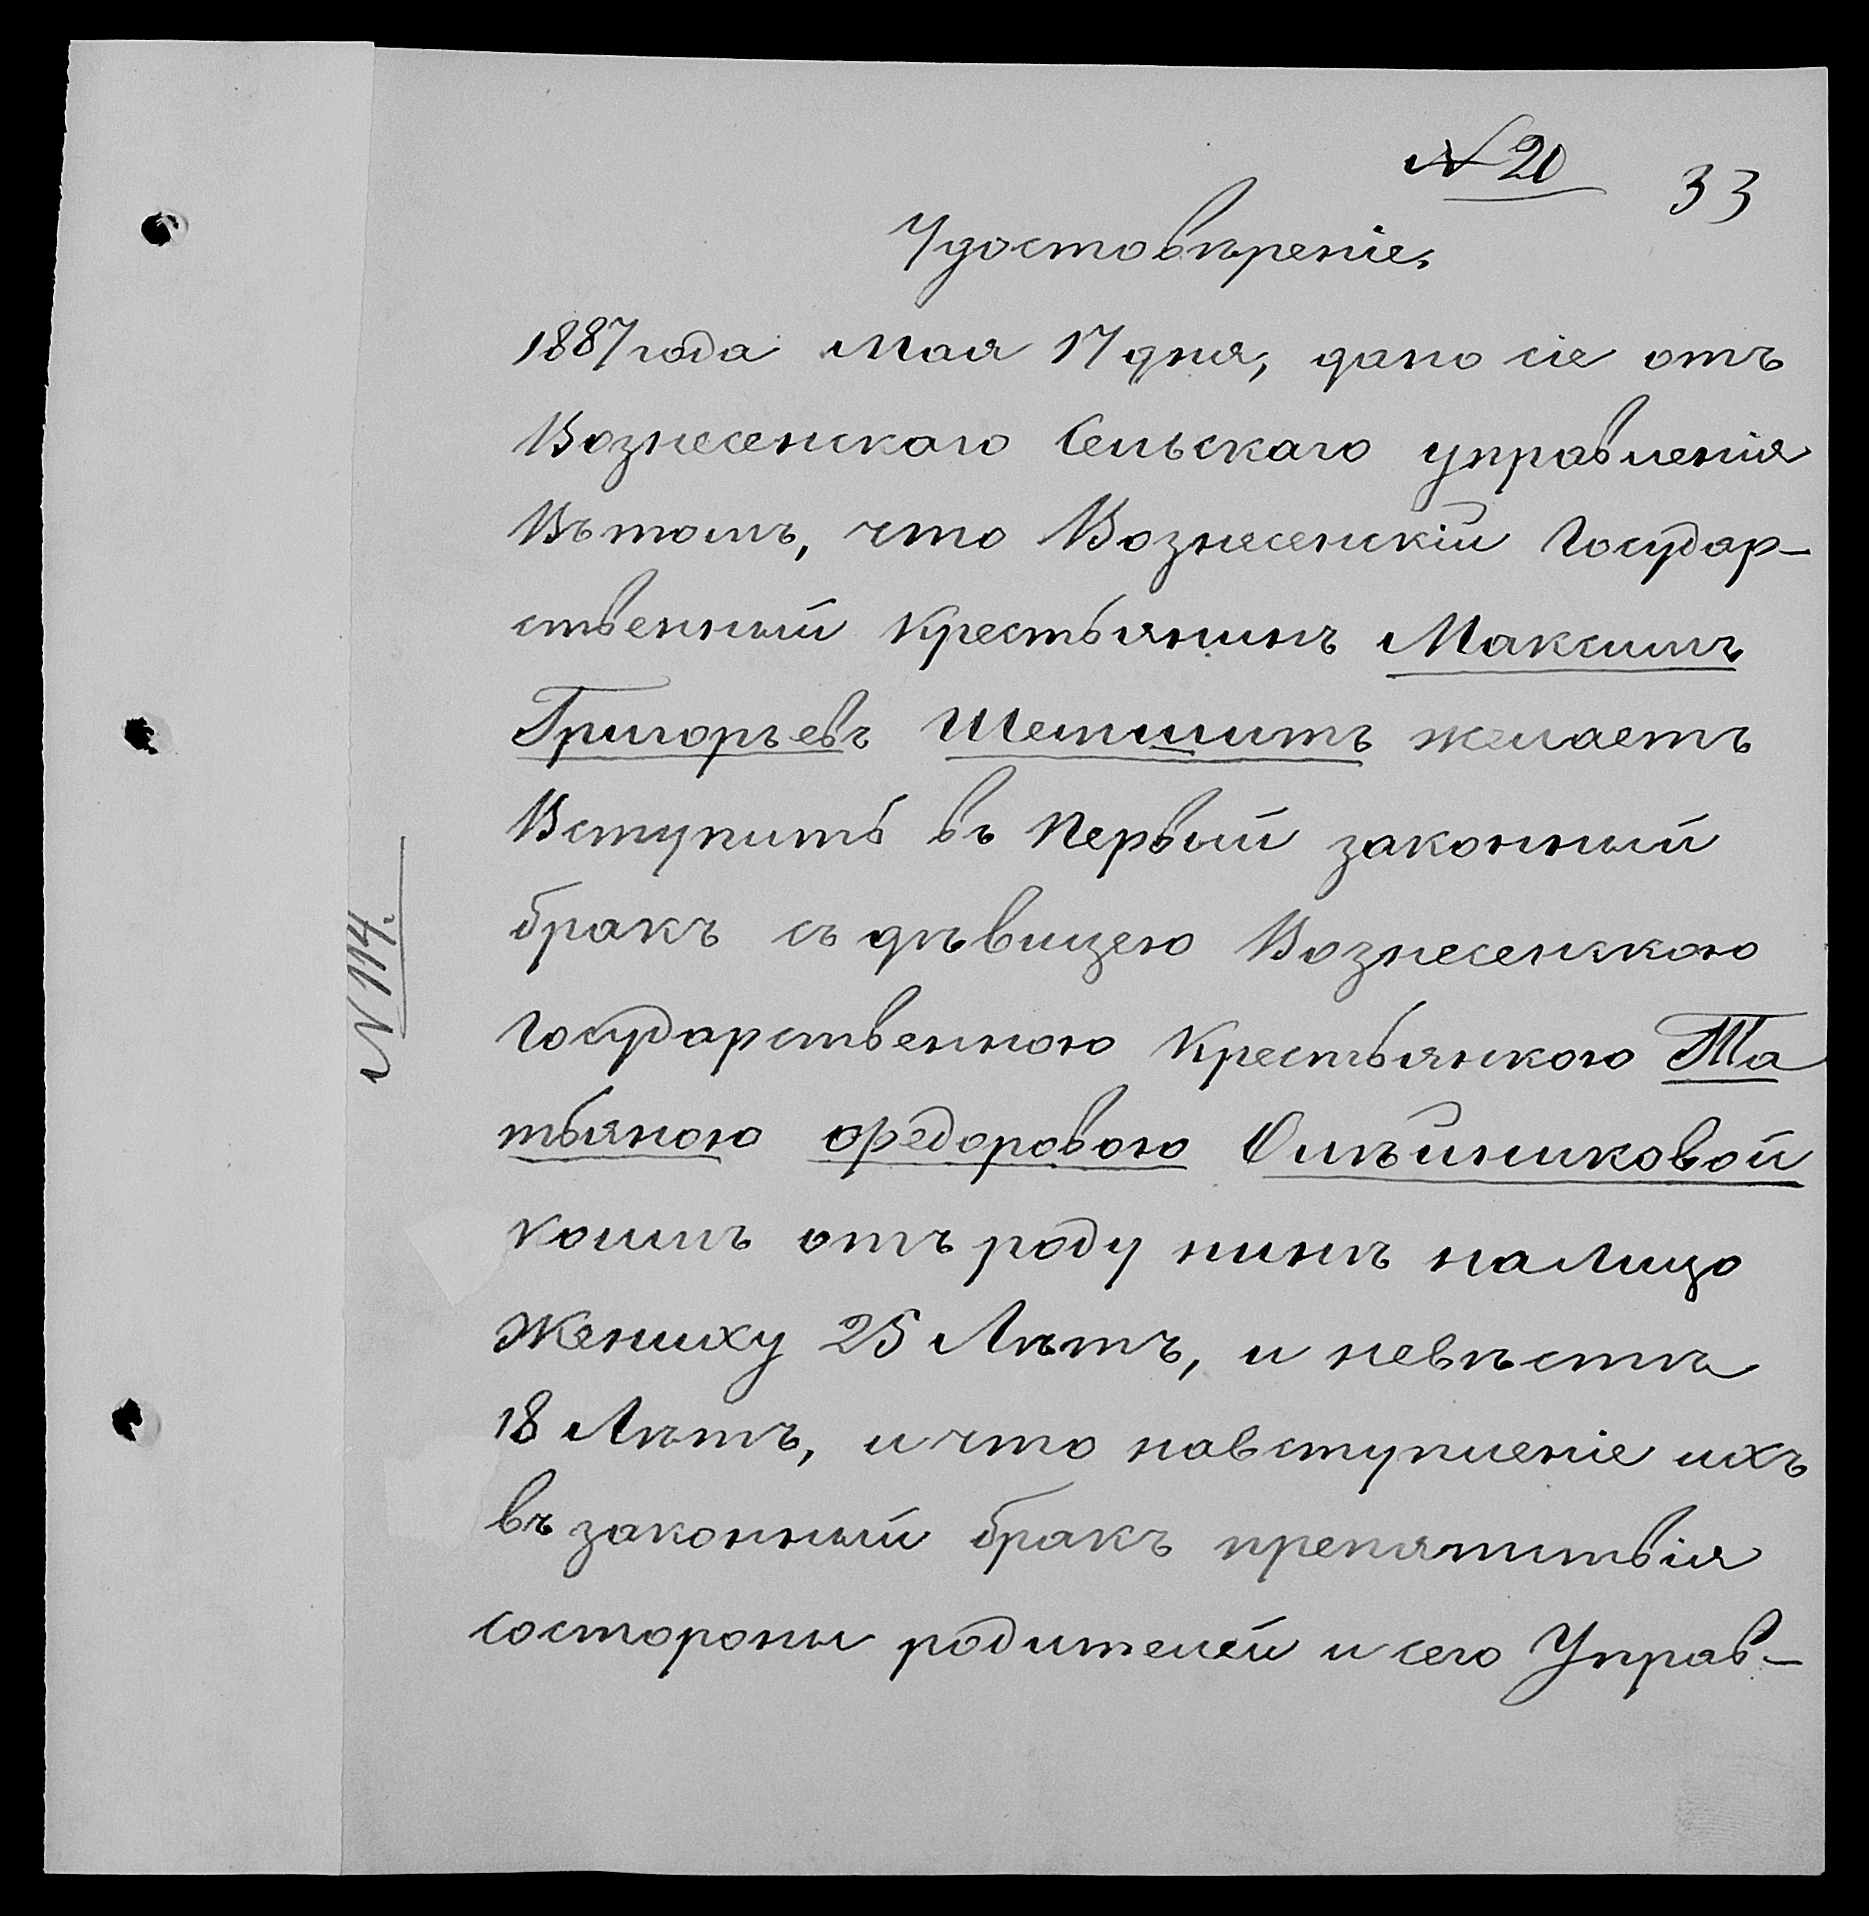 № 20
33
Удостовѣреніе.
1887 года Мая 17 дня, дано сіе отъ
Вознесенскаго Сельскаго управленія
Въ томъ, что Вознесенскій Государ-
ственный крестьянинъ Максимъ
Григорьевъ желаетъ
Вступить въ Первый законный
бракъ съ дѣвицею Вознесенскою
Государственною Крестьянкою Та
тьяною Федоровою Олѣйниковой
коимъ отъ роду нинѣ на Лицо
Жениху 25 Лѣтъ, и невѣстѣ
18 Лѣтъ, и что на вступленіе ихъ
въ законный бракъ
состороны родителей и сего Управ-
№ 114.